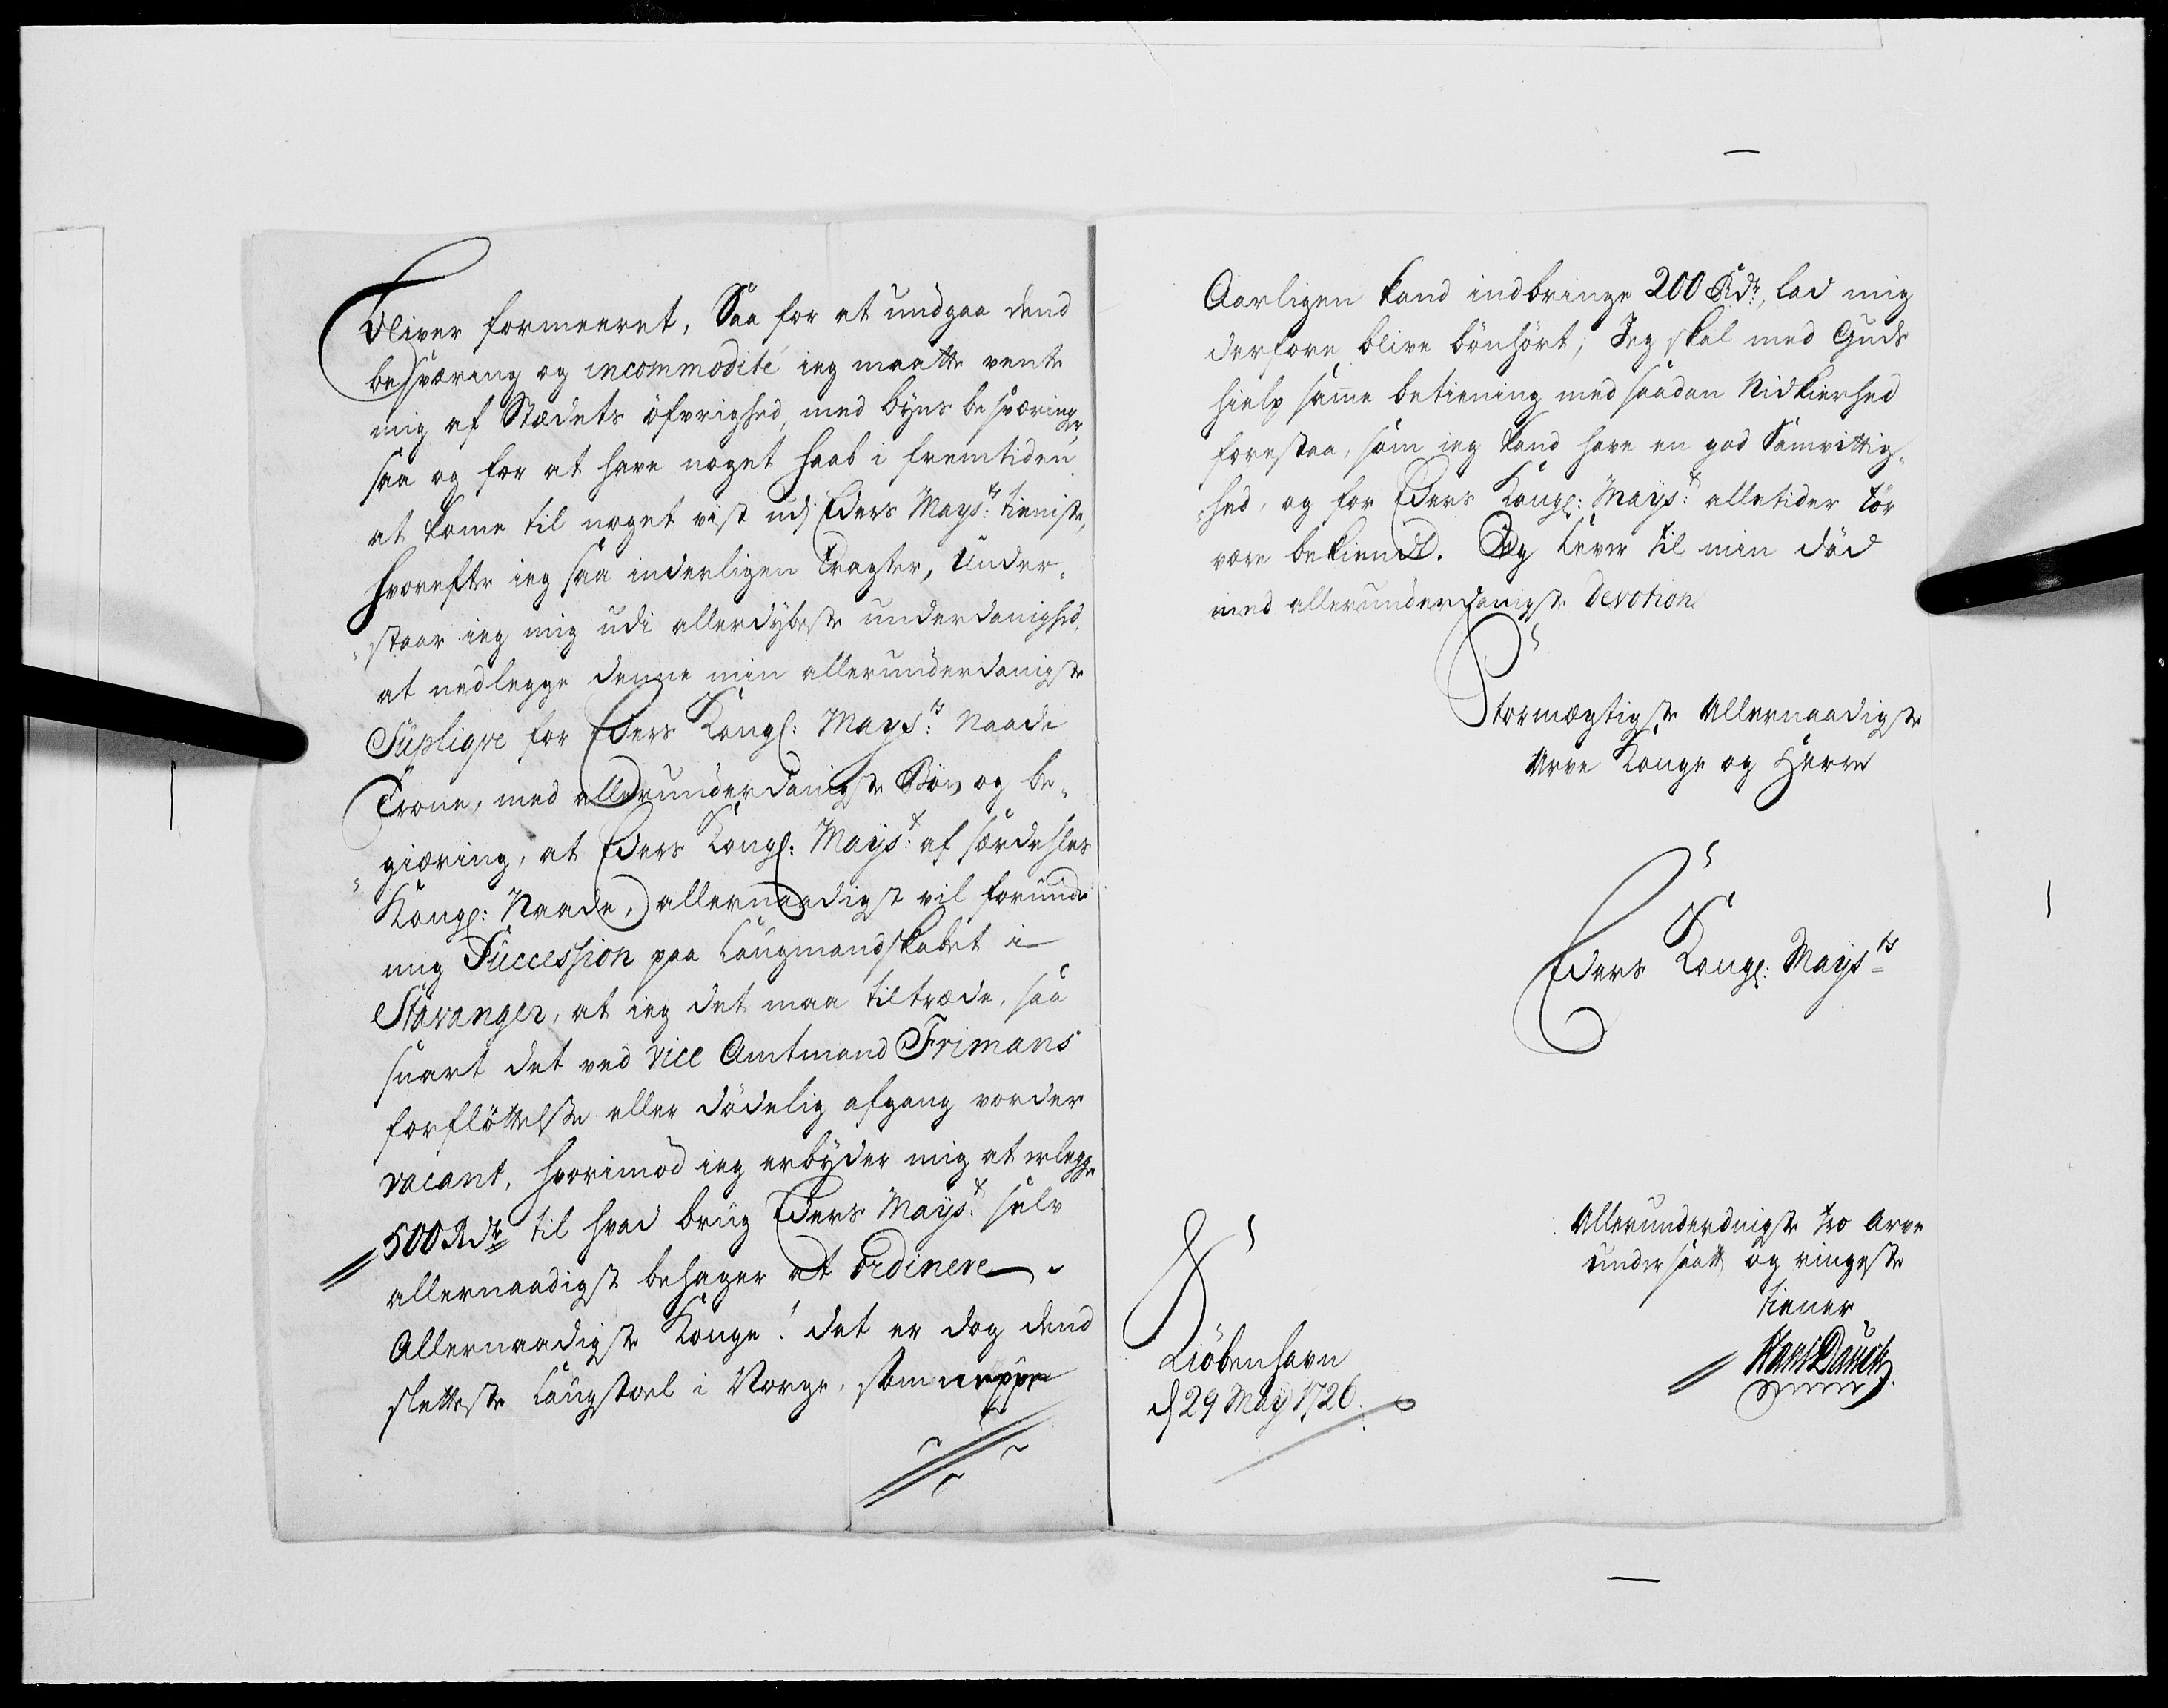 bliver formeeret, Saa for at undgaa dend
besværing og incommodité ieg maatte vente
mig af Stædets öfvrighed, med byns besværinger
saa og for at have noget haab i fremtiden
at kome til noget vist udj Eders Mayst:s tieniste,
hvorefter ieg saa inderligen Tragter, Under¬
staar ieg mig udi allerdybeste underdanighed,
at nedlegge denne min allerunderdanigste
Supliqve for Eders Kongl: Mayst:s Naade
Trone, med allerunderdanigste Bön og be¬
giæring, at Eders Kongl: Mayst: af særdeshles
Kongl: Naade, allernaadigst vil forunde
mig Succession paa Laugmandskabet i
Stavanger, at ieg det maa tiltræde, saa
snart det ved vice Amtmand Frimans
forflöttelsse eller dödelig afgang vorder
vacant, hvorimod ieg erbyder mig at erlegge
500 Rdr til hvad brug Eders Mayst: selv
allernaadigst behager at ordinere.
Allernaadigste Konge! det er dog dend
sletteste Laugstoel i Norge, som neppe
Aarligen kand indbringe 200 Rdr, lad mig
derfore blive bönhört; Jeg skal med Guds
hielp samme betiening med saadan Nidkierhed
forestaa, som ieg kand have en god Samvittig¬
hed, og for Eders Kongl: Mayst: alletider tör
være bekiendt. Og lever til min död
med allerunderdanigste Devotion
Stormægtigste Allernaadigste
Arve Konge og Herre
Eders Kongl: Mayts
Allerunderdnigste tro Arve
undersaatt og ringeste
tiener
Hans Dauch
Kiöbenhavn
d 29 Maij 1726.